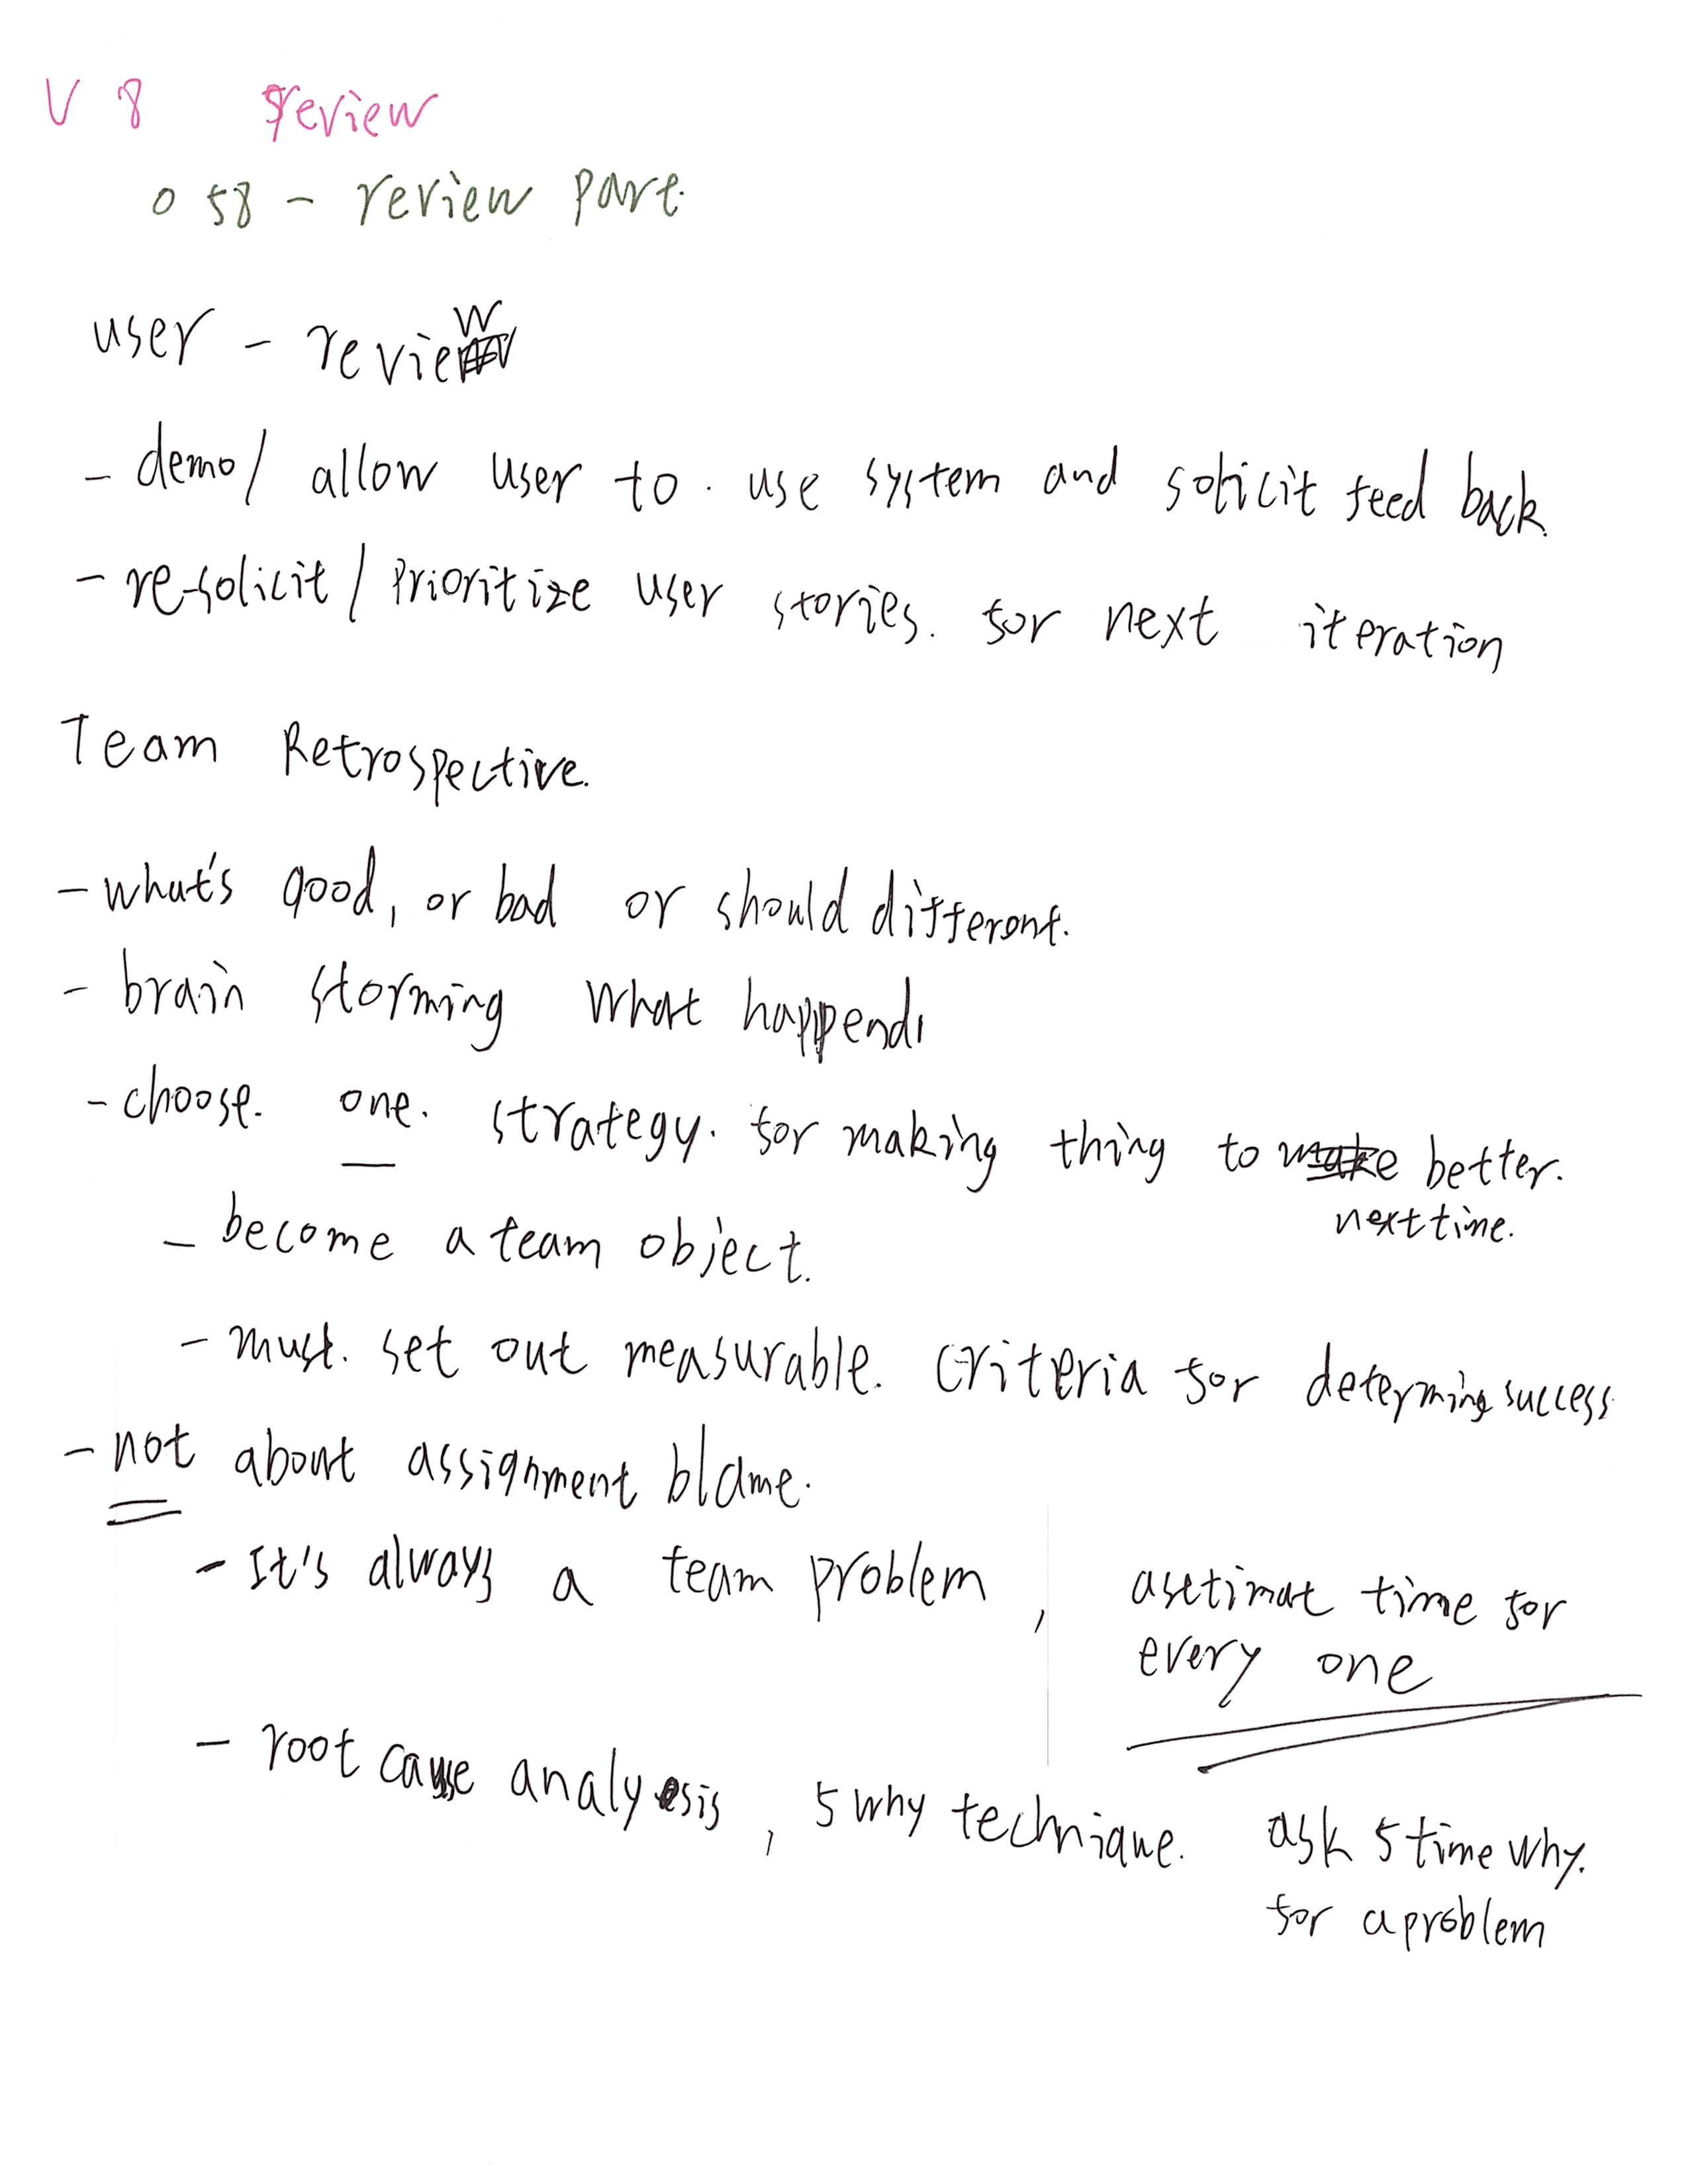 V 8 review
o 58 - review part.
user - review
- demo/ allow user to. use system and solicit feed back.
- re-solicit / Prioritize user stories. for next iteration
Team Retrospective.
- what's good, or bad or should different.
- brain storming what happend.
- choose. one. strategy. for making thing to better.
next time.
- become a team object.
- must. set out measurable. criteria for determing success.
- not about assignment blame.
- It's always a team problem,
asetimat time for
every one
- root cause analysis, 5 why technique.
ask 5 time why.
for a problem